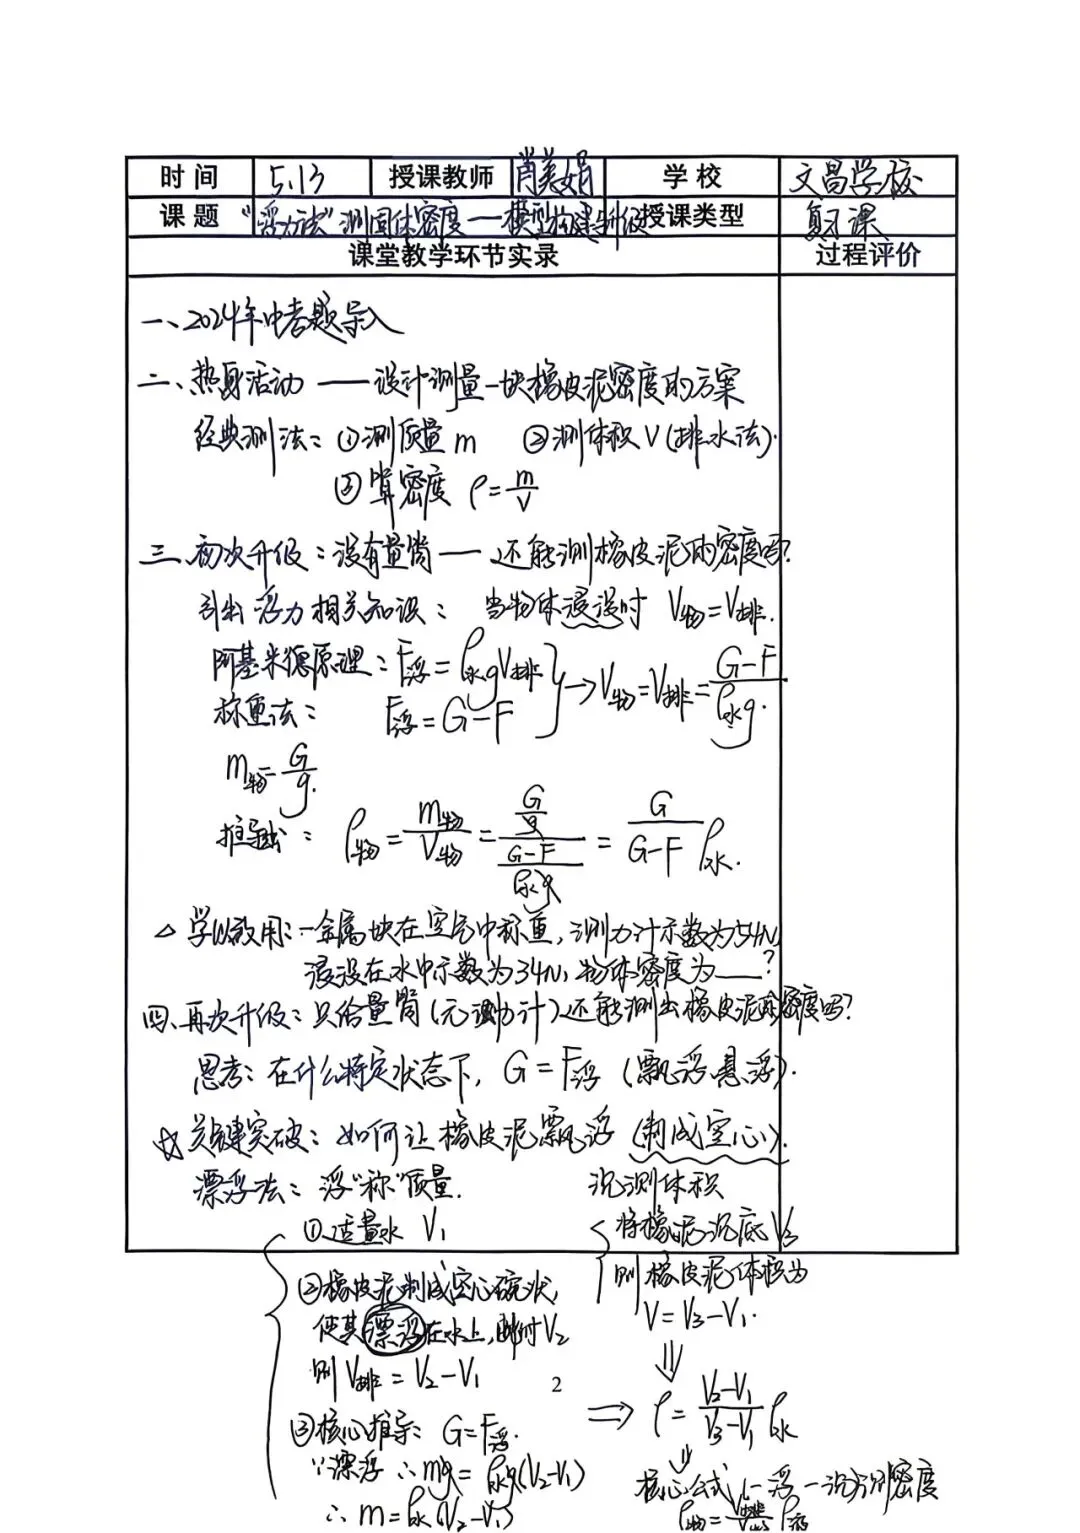 时间 5.13 授课教师 肖美娟 学校 文昌学校
课题 “浮力法”测固体密度——模型构建与升级 授课类型 复习课
课堂教学环节实录 过程评价
一、2024年中考题导入
二、热身活动——设计测量一块橡皮泥密度的方案
经典测法：①测质量m ②测体积V(排水法).
③算密度 ρ=m/V
三、初次升级：没有量筒——还能测橡皮泥的密度吗？
引出浮力相关知识：当物体浸没时 V物=V排.
阿基米德原理：F浮=ρ水gV排 } → V物=V排=(G-F)/(ρ水g).
称重法： F浮=G-F
m物=G/g.
推导出： ρ物=m物/V物=(G/g)/((G-F)/(ρ水g))=G/(G-F) ρ水.
△ 学以致用：一金属块在空气中称重，测力计示数为54N
浸没在水中示数为34N，物体密度为___？
四、再次升级：只给量筒(无测力计)还能测出橡皮泥的密度吗？
思考：在什么特定状态下，G=F浮(飘浮.悬浮).
☆关键突破：如何让橡皮泥飘浮(制成空心).
漂浮法：浮“称”质量.
①适量水 V₁
②橡皮泥制成空心碗状，
使其漂浮在水上，此时V₂
则V排=V₂-V₁
③核心推导：G=F浮.
∵漂浮 ∴mg=ρ水g(V₂-V₁)
∴m=ρ水(V₂-V₁)
沉测体积
将橡皮泥沉底V₃
则橡皮泥体积为
V=V₃-V₁.
⇓
⇒ ρ=(V₂-V₁)/(V₃-V₁) ρ水
⇓
核心公式 一浮一沉测密度
2